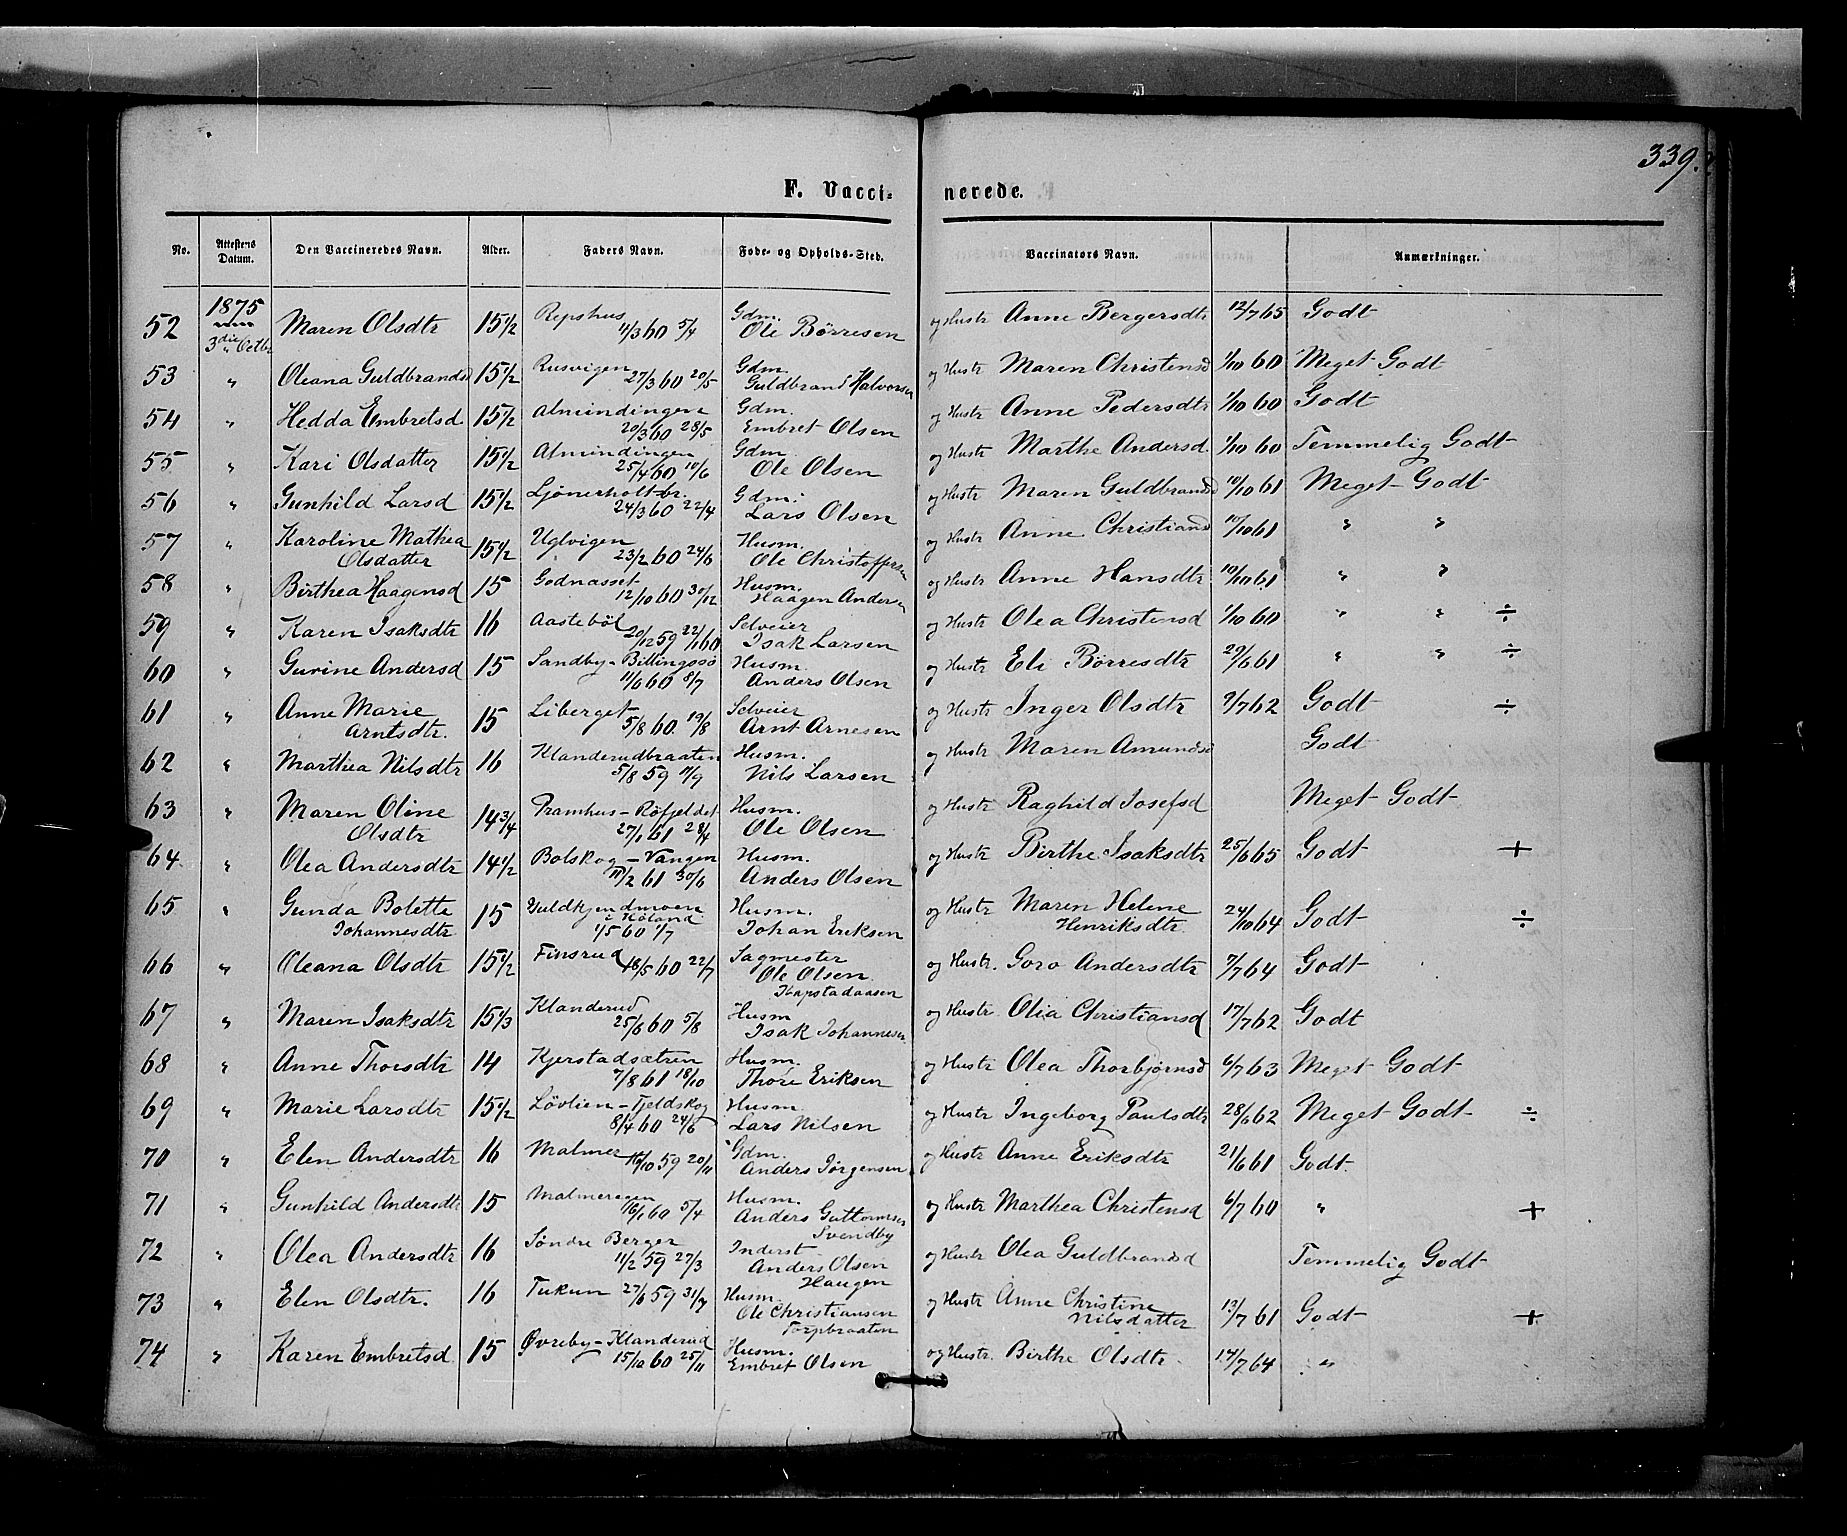 339.
F. Vacci- nerede.
No. Attestens Datum. Den Vaccineredes Navn. Alder. Faders Navn. Føde- og Opholds-Sted. Vaccinators Navn. Anmærkninger.
1875
52 3die Octbr Maren Olsdtr 15 1/2 Repshus 11/3 60 5/4 Gdm. Ole Börresen og Hustr Anne Bergersdtr 12/7 65 Godt
53 " Oleana Guldbrandsd 15 1/2 Rusvigen 27/3 60 20/5 Gdm. Guldbrand Halvorsen og Hustr Maren Christensd 1/10 60 Meget Godt
54 " Hedda Embretsd 15 1/2 Almindingen 20/3 60 28/5 Gdm. Embret Olsen og Hustr Anne Pedersdtr 1/10 60 Godt
55 " Kari Olsdatter 15 1/2 Almindingen 25/4 60 10/6 Gdm. Ole Olsen og Hustr Marthe Andersd. 1/10 60 Temmelig Godt
56 " Gunhild Larsd 15 1/2 Ljönerholtbr. 24/3 60 22/4 Gdm. Lars Olsen og Hustr Maren Guldbrandsd 10/10 61 Meget Godt
57 " Karoline Mathea Olsdatter 15 1/2 Uglvigen 23/2 60 24/6 Husm. Ole Christoffersen og Hustr Anne Christiansd 10/10 61 " "
58 " Birthea Haagensd 15 Godnasset 12/10 60 30/12 Husm. Haagen Andersen og Hustr Anne Hansdtr 10/10 61 " "
59 " Karen Isaksdtr 16 Aasteböl 20/12 59 22/1 60 Selveier Isak Larsen og Hustr Olea Christensd 1/10 60 " " ÷
60 " Gurine Andersd 15 Sandby-Billingssö 11/6 60 8/7 Husm. Anders Olsen og Hustr Eli Börresdtr 29/6 61 " " ÷
61 " Anne Marie Arntsdtr. 15 Liberget 5/8 60 19/8 Selveier Arnt Arnesen og Hustr Inger Olsdtr 9/7 62 Godt ÷
62 " Marthea Nilsdtr 16 Klanderudbraaten 5/8 59 11/9 Husm. Nils Larsen og Hustr Maren Amundsd Godt
63 " Maren Oline Olsdtr 14 3/4 Pramhus-Röfjeldet 27/1 61 28/4 Husm. Ole Olsen og Hustr Raghild Josefsd Meget Godt
64 " Olea Andersdtr 14 1/2 Bolskog-Vangen 11/2 61 30/6 Husm. Anders Olsen og Hustr Birthe Isaksdtr 25/6 65 Godt +
65 " Gunda Bolette Johannesdtr 15 Guldkjendmoen i Höland 1/5 60 1/7 Husm. Johan Eriksen og Hustr Maren Helene Henriksdtr 24/10 64 Godt ÷
66 " Oleana Olsdtr 15 1/2 Finsrud 18/5 60 22/7 Sagmester Ole Olsen Kapstadaasen og Hustr. Goro Andersdtr 7/7 64 Godt
67 " Maren Isaksdtr 15 1/3 Klanderud 25/6 60 5/8 Husm Isak Johannesen og Hustr. Olia Christiansd 17/7 62 Godt
68 " Anne Thoresdtr 14 Kjerstadsætren 7/8 61 18/10 Husm. Thore Eriksen og Hustr Olea Thorbjörnsd 6/7 63 Meget Godt
69 " Marie Larsdtr 15 1/2 Lövlien-Fjeldskog 8/4 60 24/6 Husm. Lars Nilsen og Hustr Ingeborg Paulsdtr 28/6 62 Meget Godt ÷
70 " Elen Andersdtr 16 Malmer 16/10 59 20/11 Gdm. Anders Jörgensen og Hustr Anne Eriksdtr 21/6 61 Godt.
71 " Gunhild Andersdtr 15 Malmeregen 16/1 60 5/4 Husm. Anders Guttormsen Svendby og Hustr Marthea Christensd 6/7 60 " +
72 " Olea Andersdtr 16 Söndre Berger 11/2 59 27/3 Inderst Anders Olsen Haugen og Hustr Olea Guldbrandsd Temmelig Godt
73 " Elen Olsdtr. 16 Tukun 27/6 59 31/7 Husm. Ole Christiansen Torpbraaten og Hustr Anne Christine Nilsdatter 13/7 61 Godt +
74 " Karen Embretsd. 15 Øvreby-Klanderud 15/10 60 25/11 Husm. Embret Olsen og Hustr. Birthe Olsdtr 14/7 64 "